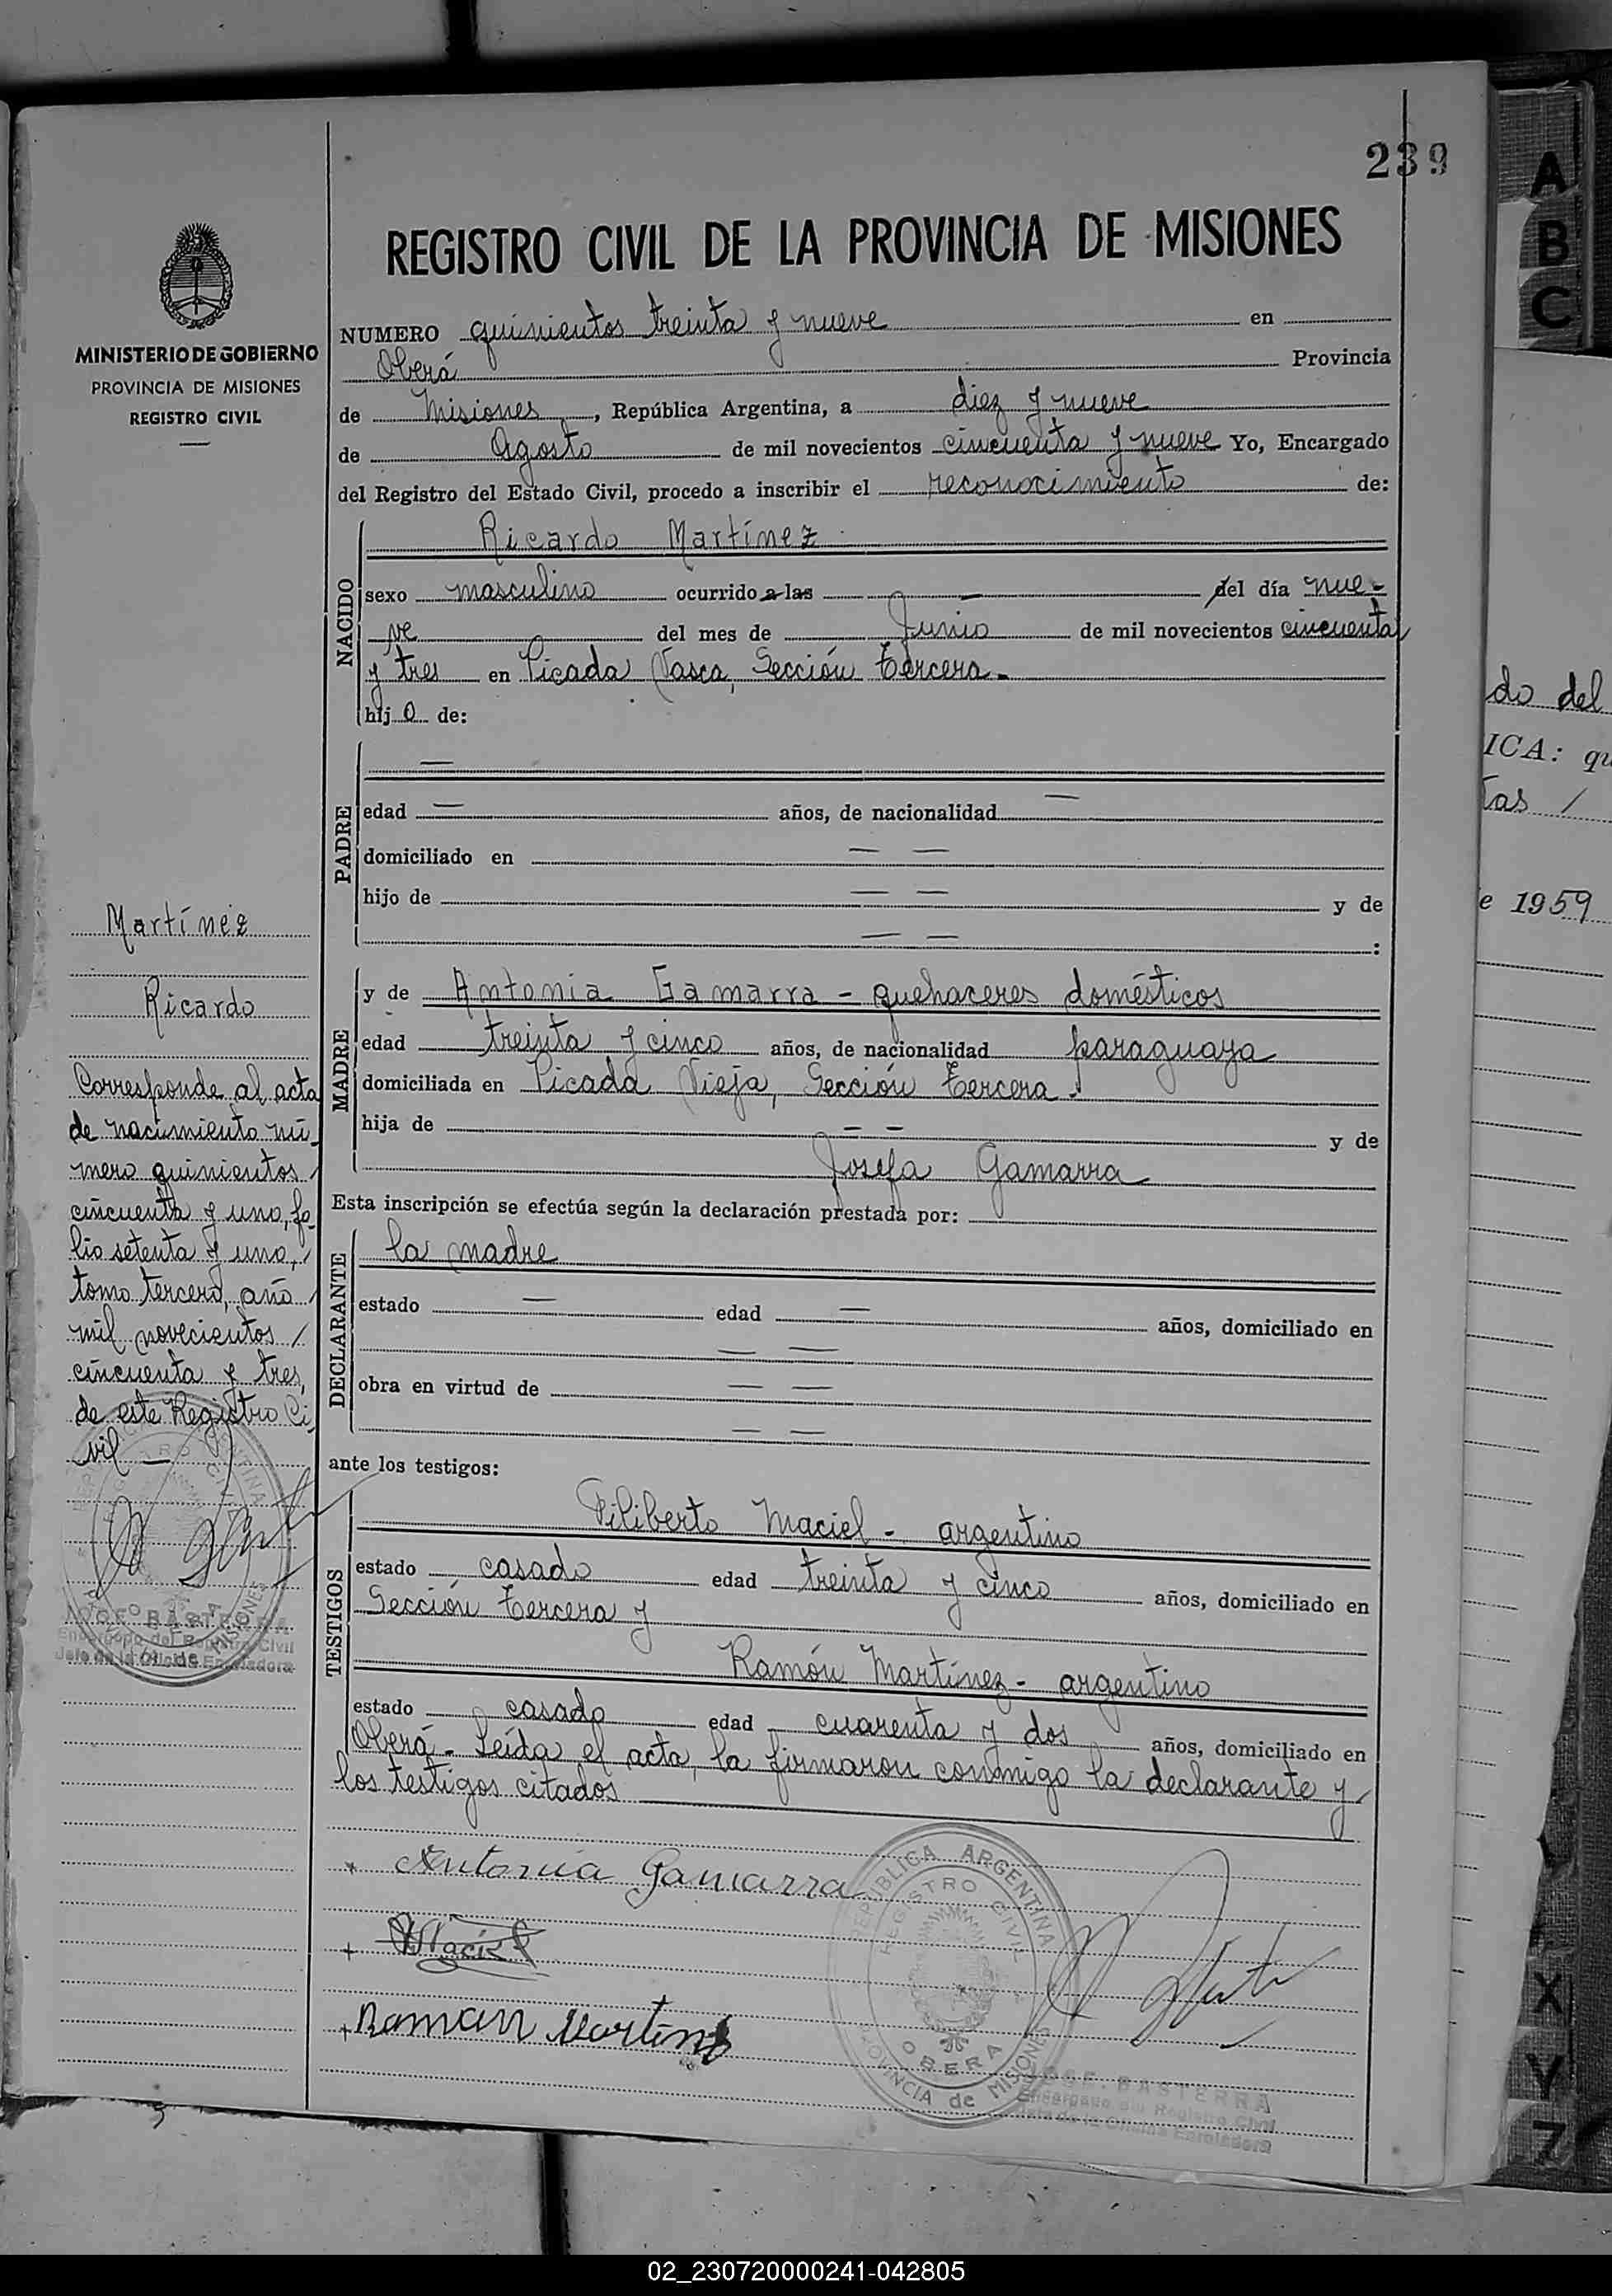 239
REGISTRO CIVIL DE LA PROVINCIA DE MISIONES
MINISTERIO DE GOBIERNO
PROVINCIA DE MISIONES
REGISTRO CIVIL
NUMERO quinientos treinta y nueve en
Oberá Provincia
de Misiones, República Argentina, a diez y nueve
de Agosto de mil novecientos cincuenta y nueve Yo, Encargado
del Registro del Estado Civil, procedo a inscribir el reconocimiento de:
NACIDO
Ricardo Martínez
sexo masculino ocurrido a las — del día nue-
ve del mes de Junio de mil novecientos cincuenta
y tres en Picada Vasca, Sección Tercera.-
hij o de:
PADRE
—
edad — años, de nacionalidad —
domiciliado en — —
hijo de — — y de
— — :
MADRE
y de Antonia Gamarra - quehaceres domésticos
edad treinta y cinco años, de nacionalidad paraguaya
domiciliada en Picada Vieja, Sección Tercera.-
hija de — — y de
Josefa Gamarra
Esta inscripción se efectúa según la declaración prestada por:
DECLARANTE
la madre
estado — edad — años, domiciliado en
— —
obra en virtud de — —
— —
ante los testigos:
TESTIGOS
Filiberto Maciel - argentino
estado casado edad treinta y cinco años, domiciliado en
Sección Tercera y
Ramón Martínez - argentino
estado casado edad cuarenta y dos años, domiciliado en
Oberá - Leída el acta, la firmaron conmigo la declarante y
los testigos citados
+ Antonia Gamarra
+ Maciel
+ Roman Martinez
REPUBLICA ARGENTINA
REGISTRO CIVIL
OBERA
PROVINCIA de MISIONES
JOSE F. BASTERRA
Encargado del Registro Civil
Jefe de la Oficina Enroladora
Martínez
Ricardo
Corresponde al acta
de nacimiento nú-
mero quinientos /
cincuenta y uno, fo-
lio setenta y uno, /
tomo tercero, año /
mil novecientos /
cincuenta y tres,
de este Registro Ci-
vil —
JOSE F. BASTERRA
Encargado del Registro Civil
Jefe de la Oficina Enroladora
do del
ICA: qu
tas /
e 1959
A
B
C
X
Y
Z
02_230720000241-042805